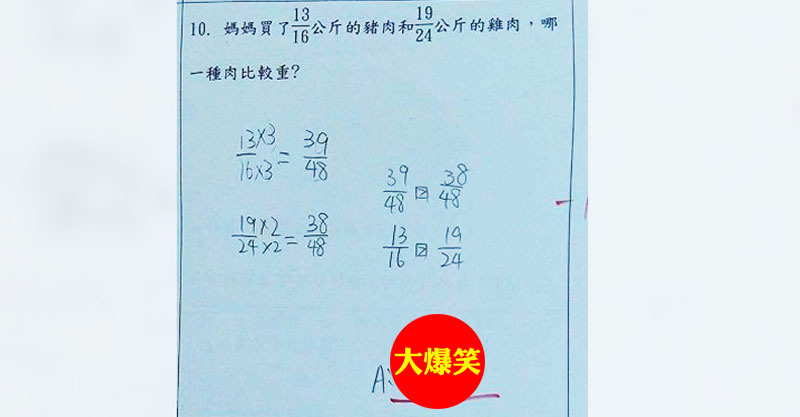 10. 媽媽買了13/16公斤的豬肉和19/24公斤的雞肉，哪
一種肉比較重?
13×3/16×3 = 39/48
19×2/24×2 = 38/48
39/48 > 38/48
13/16 > 19/24
A:
大爆笑